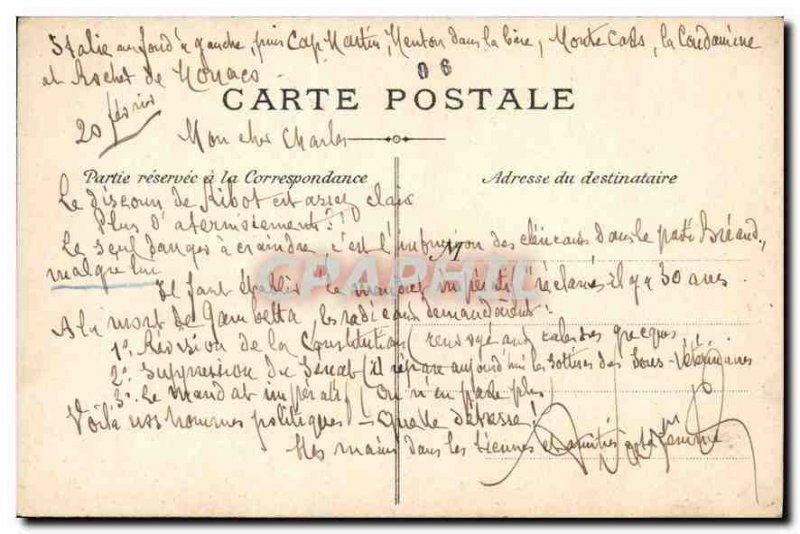 Italie au fond à gauche, puis Cap Martin, Menton dans la baie, Monte Carlo, la Condamine
et Rocher de Monaco
06
CARTE POSTALE
20 février
Mon cher Charles
Partie réservée à la Correspondance
Adresse du destinataire
Le discours de Ribot est assez clair
Plus d'atermoiements?!!
Le seul danger à craindre, c'est l'intrusion des cléricaux dans le parti Briand,
malgré lui
Il faut établir le mandat impératif réclamé il y a 30 ans
CPARAMA.com
A la mort de Gambetta les radicaux demandaient:
1º Révision de la Constitution (renvoyé aux calendes grecques
2º Suppression du Sénat (il répare aujourd'hui les sottises des sous-vétérinaires
3º Le mandat impératif (On n'en parle plus)
Voilà nos hommes politiques! - Quelle détresse!
Mes mains dans les tiennes et amitiés